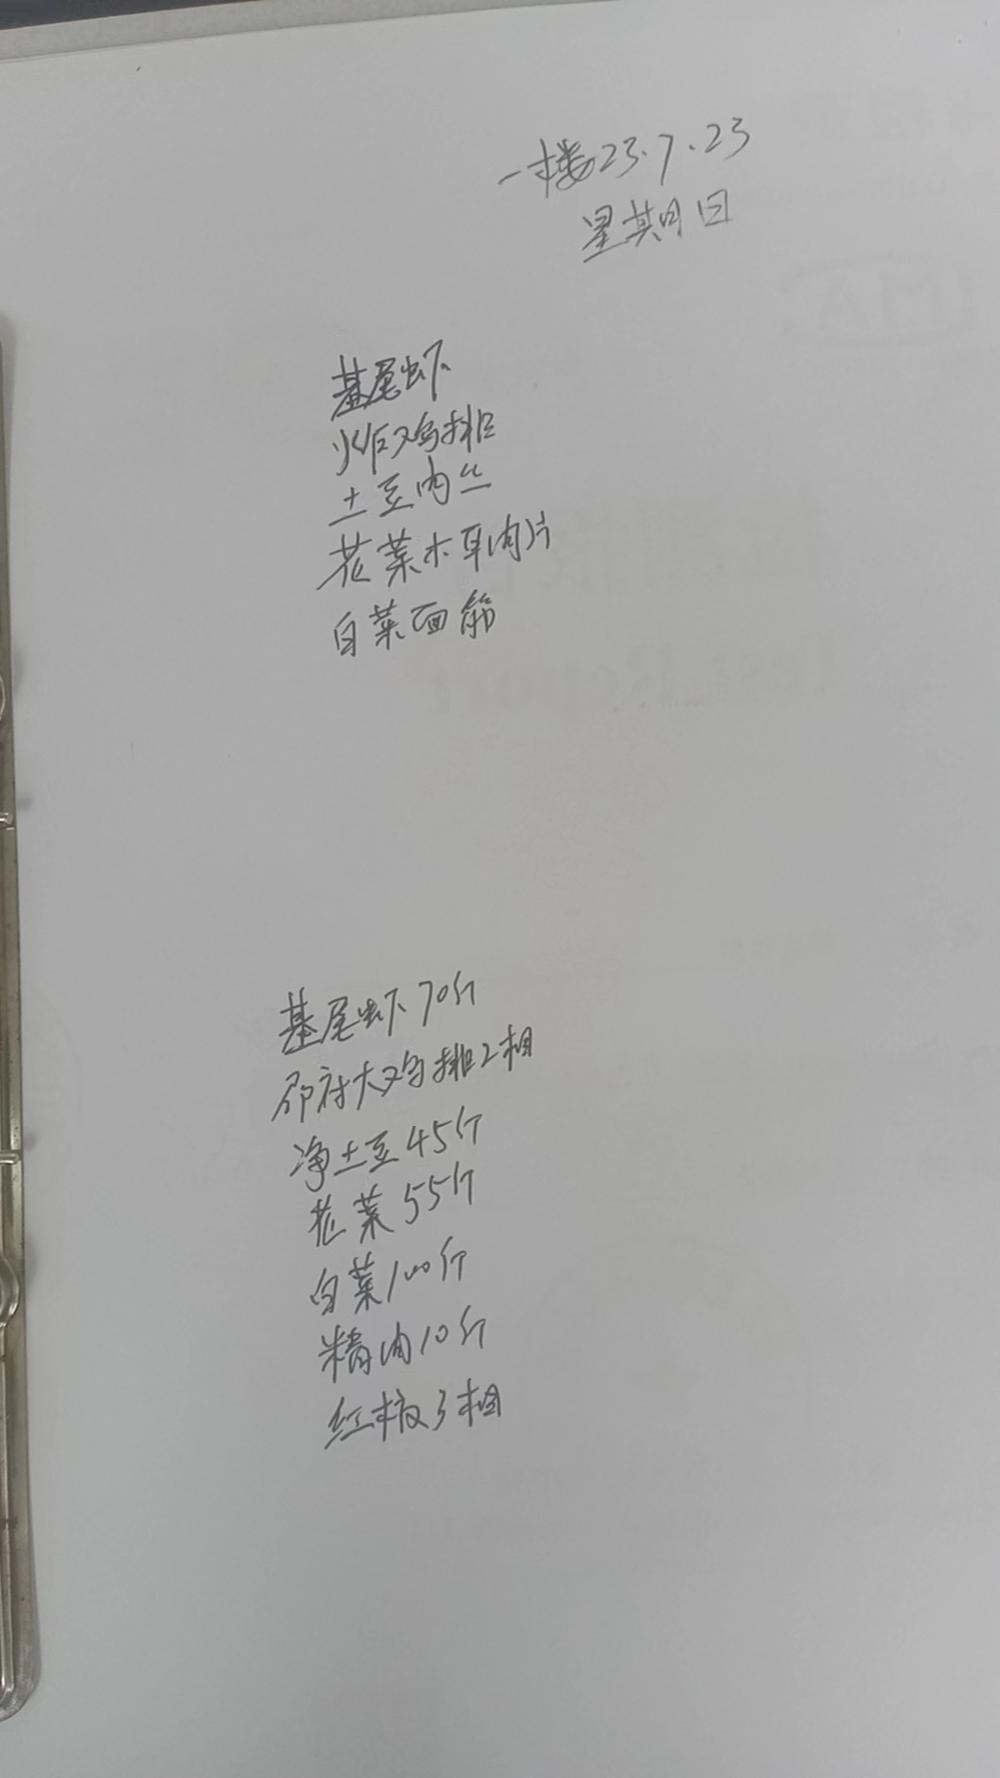 一楼23.7.23
星期日
基尾虾
炸鸡排
土豆肉丝
花菜木耳肉片
白菜面筋
基尾虾70斤
大鸡排2相
净土豆45斤
花菜55斤
白菜100斤
精肉10斤
红椒3相